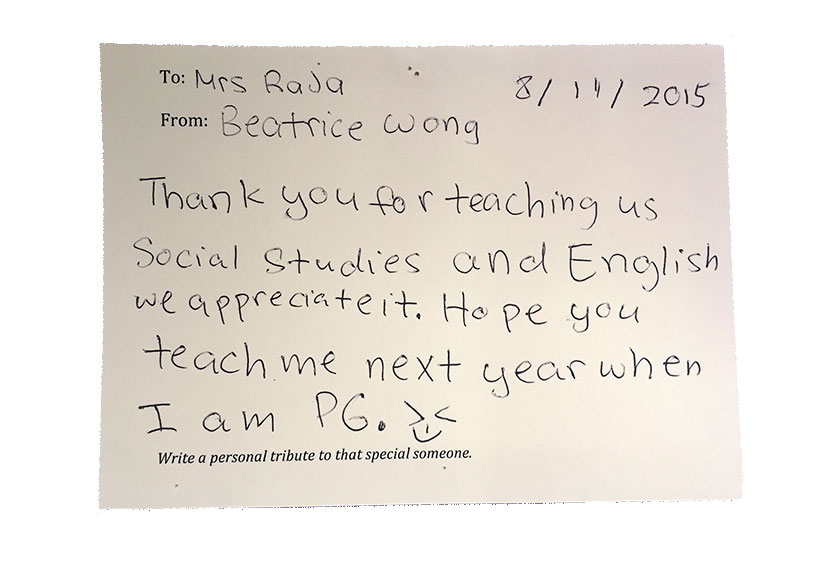 To: Mrs Raja
8/11/2015
From: Beatrice Wong
Thank you for teaching us
Social Studies and English
we appreciate it. Hope you
teach me next year when
I am P6. >‿<
Write a personal tribute to that special someone.